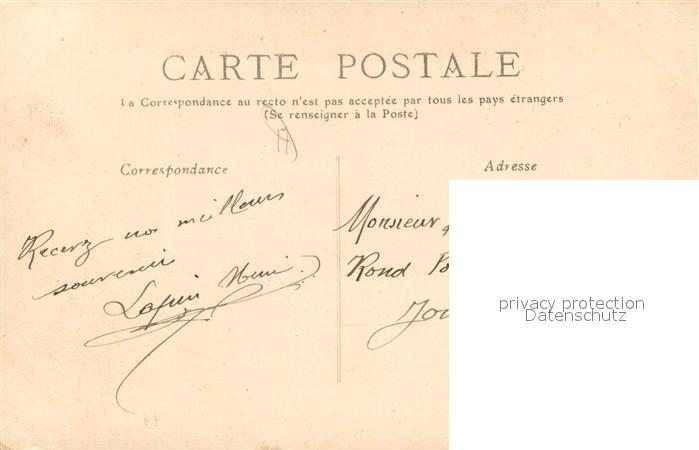 CARTE POSTALE
La Correspondance au recto n'est pas acceptée par tous les pays étrangers
(Se renseigner à la Poste)
17
Correspondance
Adresse
Recevez nos meilleurs
souvenir
Monsieur
Rond
privacy protection
Datenschutz